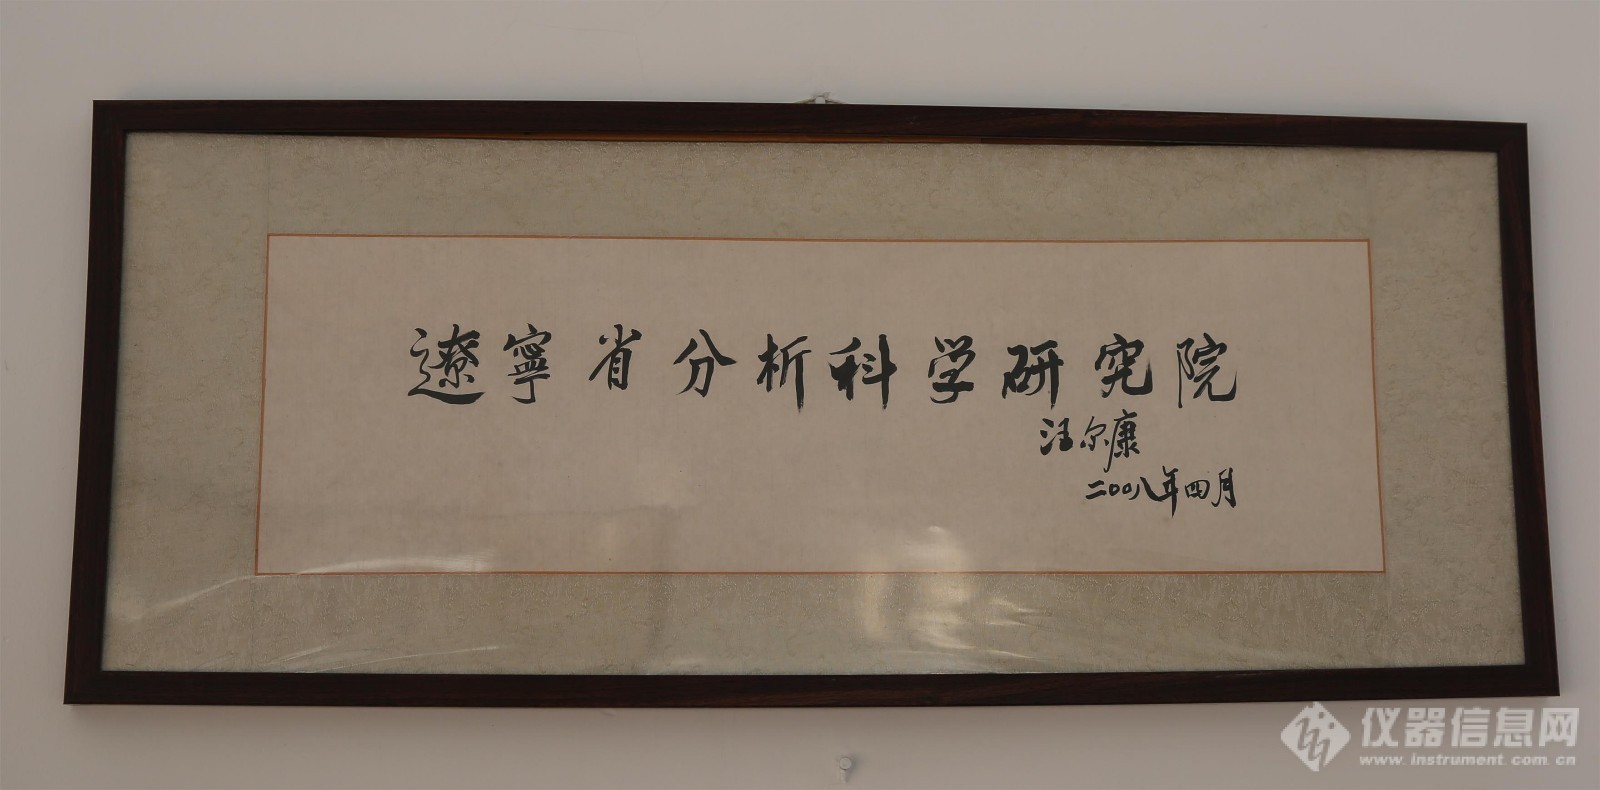 遼寧省分析科学研究院
汪尔康
二〇〇八年四月
仪器信息网
www.instrument.com.cn